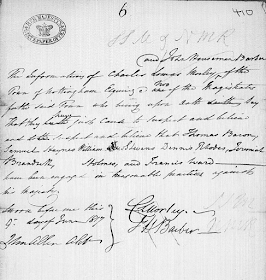 6
and John Houseman Barber
The Information of Charles Lomas Morley, of the
Town of Nottingham Esquire two of the Magistrates
for the said Town who being upon oath severally say
That they have just Cause to suspect and believe
and do suspect and believe that Thomas Bacon,
Samuel Haynes William Stevens Dennis Rhodes Jeremiah
Brandreth, Holmes, and Francis Ward
have been engaged in treasonable practices against
his Majesty
Sworn before me this
9th day of June 1817
John Allen
C L Morley
J H Barber